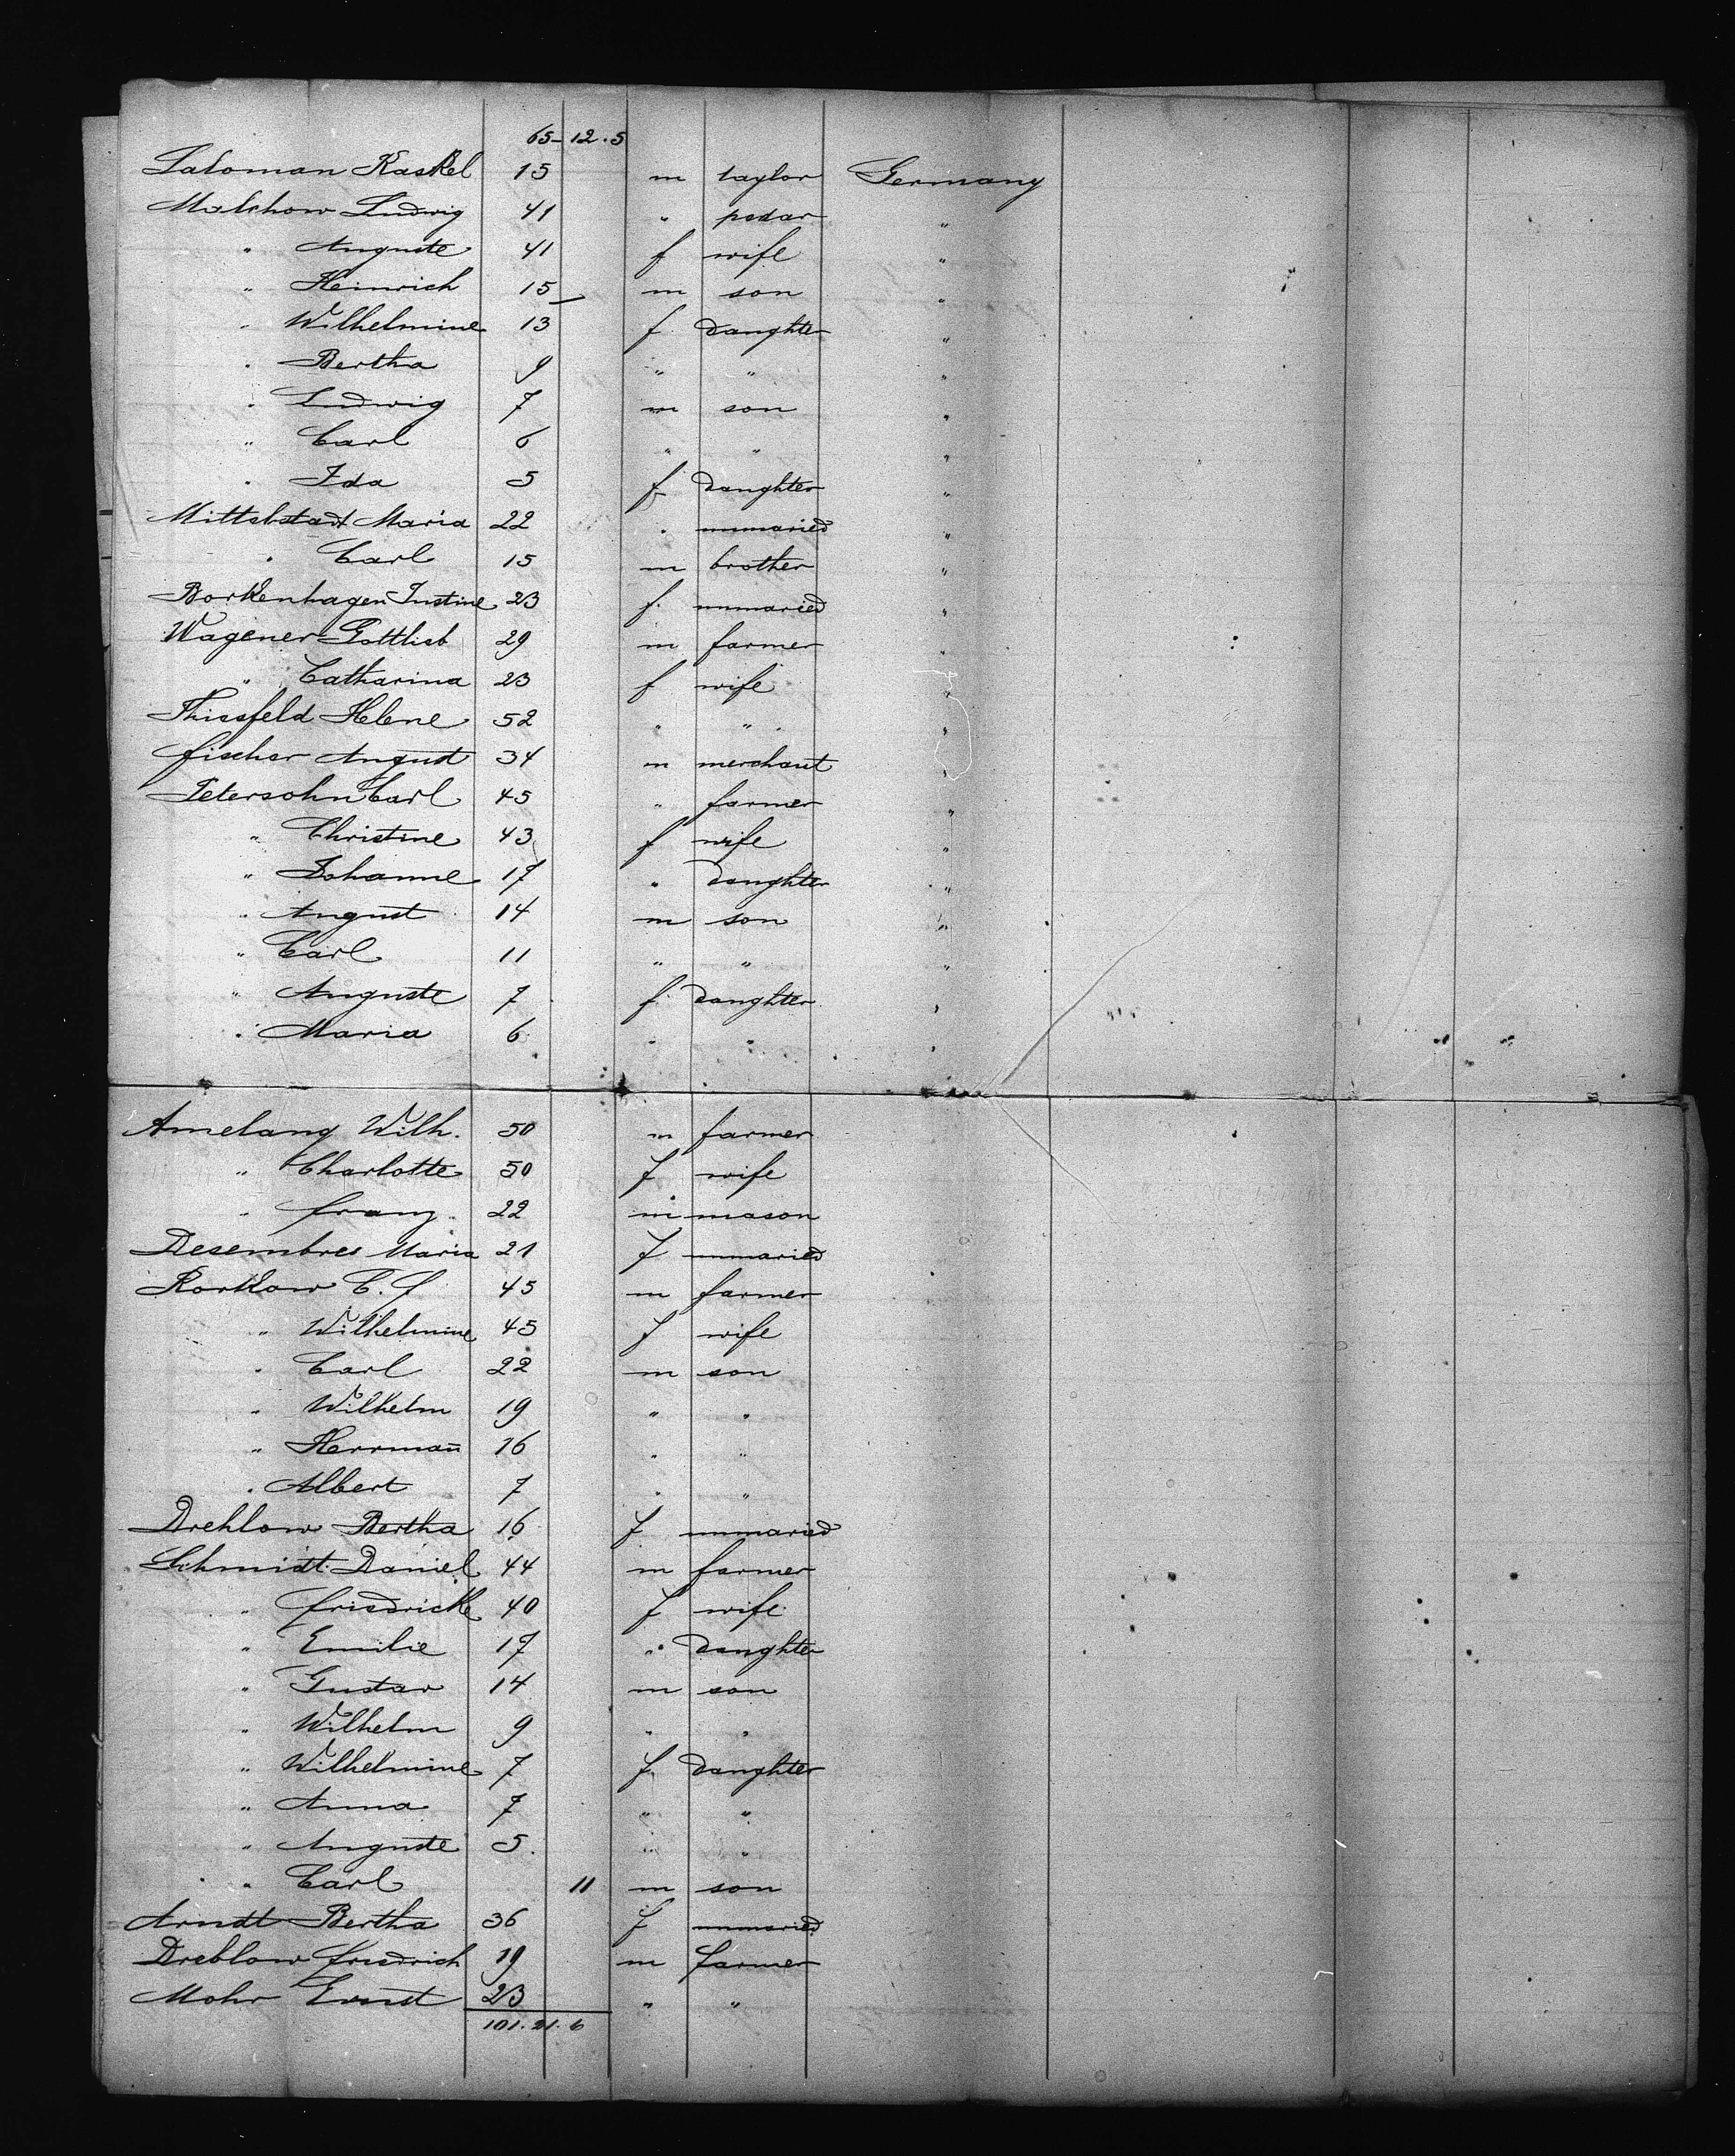 65-12.5
Saloman Kaskel 15 m taylor Germany
Malchow Ludwig 41 " "
" Auguste 41 f wife "
" Heinrich 15 m son "
" Wilhelmine 13 f daughter "
" Bertha 9 " " "
" Ludwig 7 m son "
" Carl 6 " " "
" Ida 5 f daughter "
Mittelstadt Maria 22 " unmaried "
" Carl 15 m brother "
Borkenhagen Justine 23 f. unmaried "
Wagener Gottlieb 29 m farmer "
" Catharina 23 f wife "
Thissfeld Helene 52 " " "
Fischer August 34 m merchant "
Petersohn Carl 45 " farmer "
" Christine 43 f wife "
" Johanne 17 " daughter "
" August 14 m son "
" Carl 11 " " "
" Auguste 7 f. daughter "
" Maria 6 " " "
Amelang Wilh. 50 m farmer
" Charlotte 50 f wife
" Franz 22 m mason
Desembres Maria 21 f unmaried
Rorkow C. F 45 m farmer
" Wilhelmine 45 f wife
" Carl 22 m son
" Wilhelm 19 " "
" Herrman̄ 16 " "
" Albert 7 " "
Drehlow Bertha 16 f unmaried
Schmidt Daniel 44 m farmer
" Friedricke 40 f wife
" Emilie 17 " daughter
" Gustav 14 m son
" Wilhelm 9 " "
" Wilhelmine 7 f daughter
" Anna 7 " "
" Auguste 5 " "
" Carl 11 m son
Arndt Bertha 36 f unmaried
Dreblow Friedrich 19 m farmer
Mohr Ernst 23 " "
101.21.6